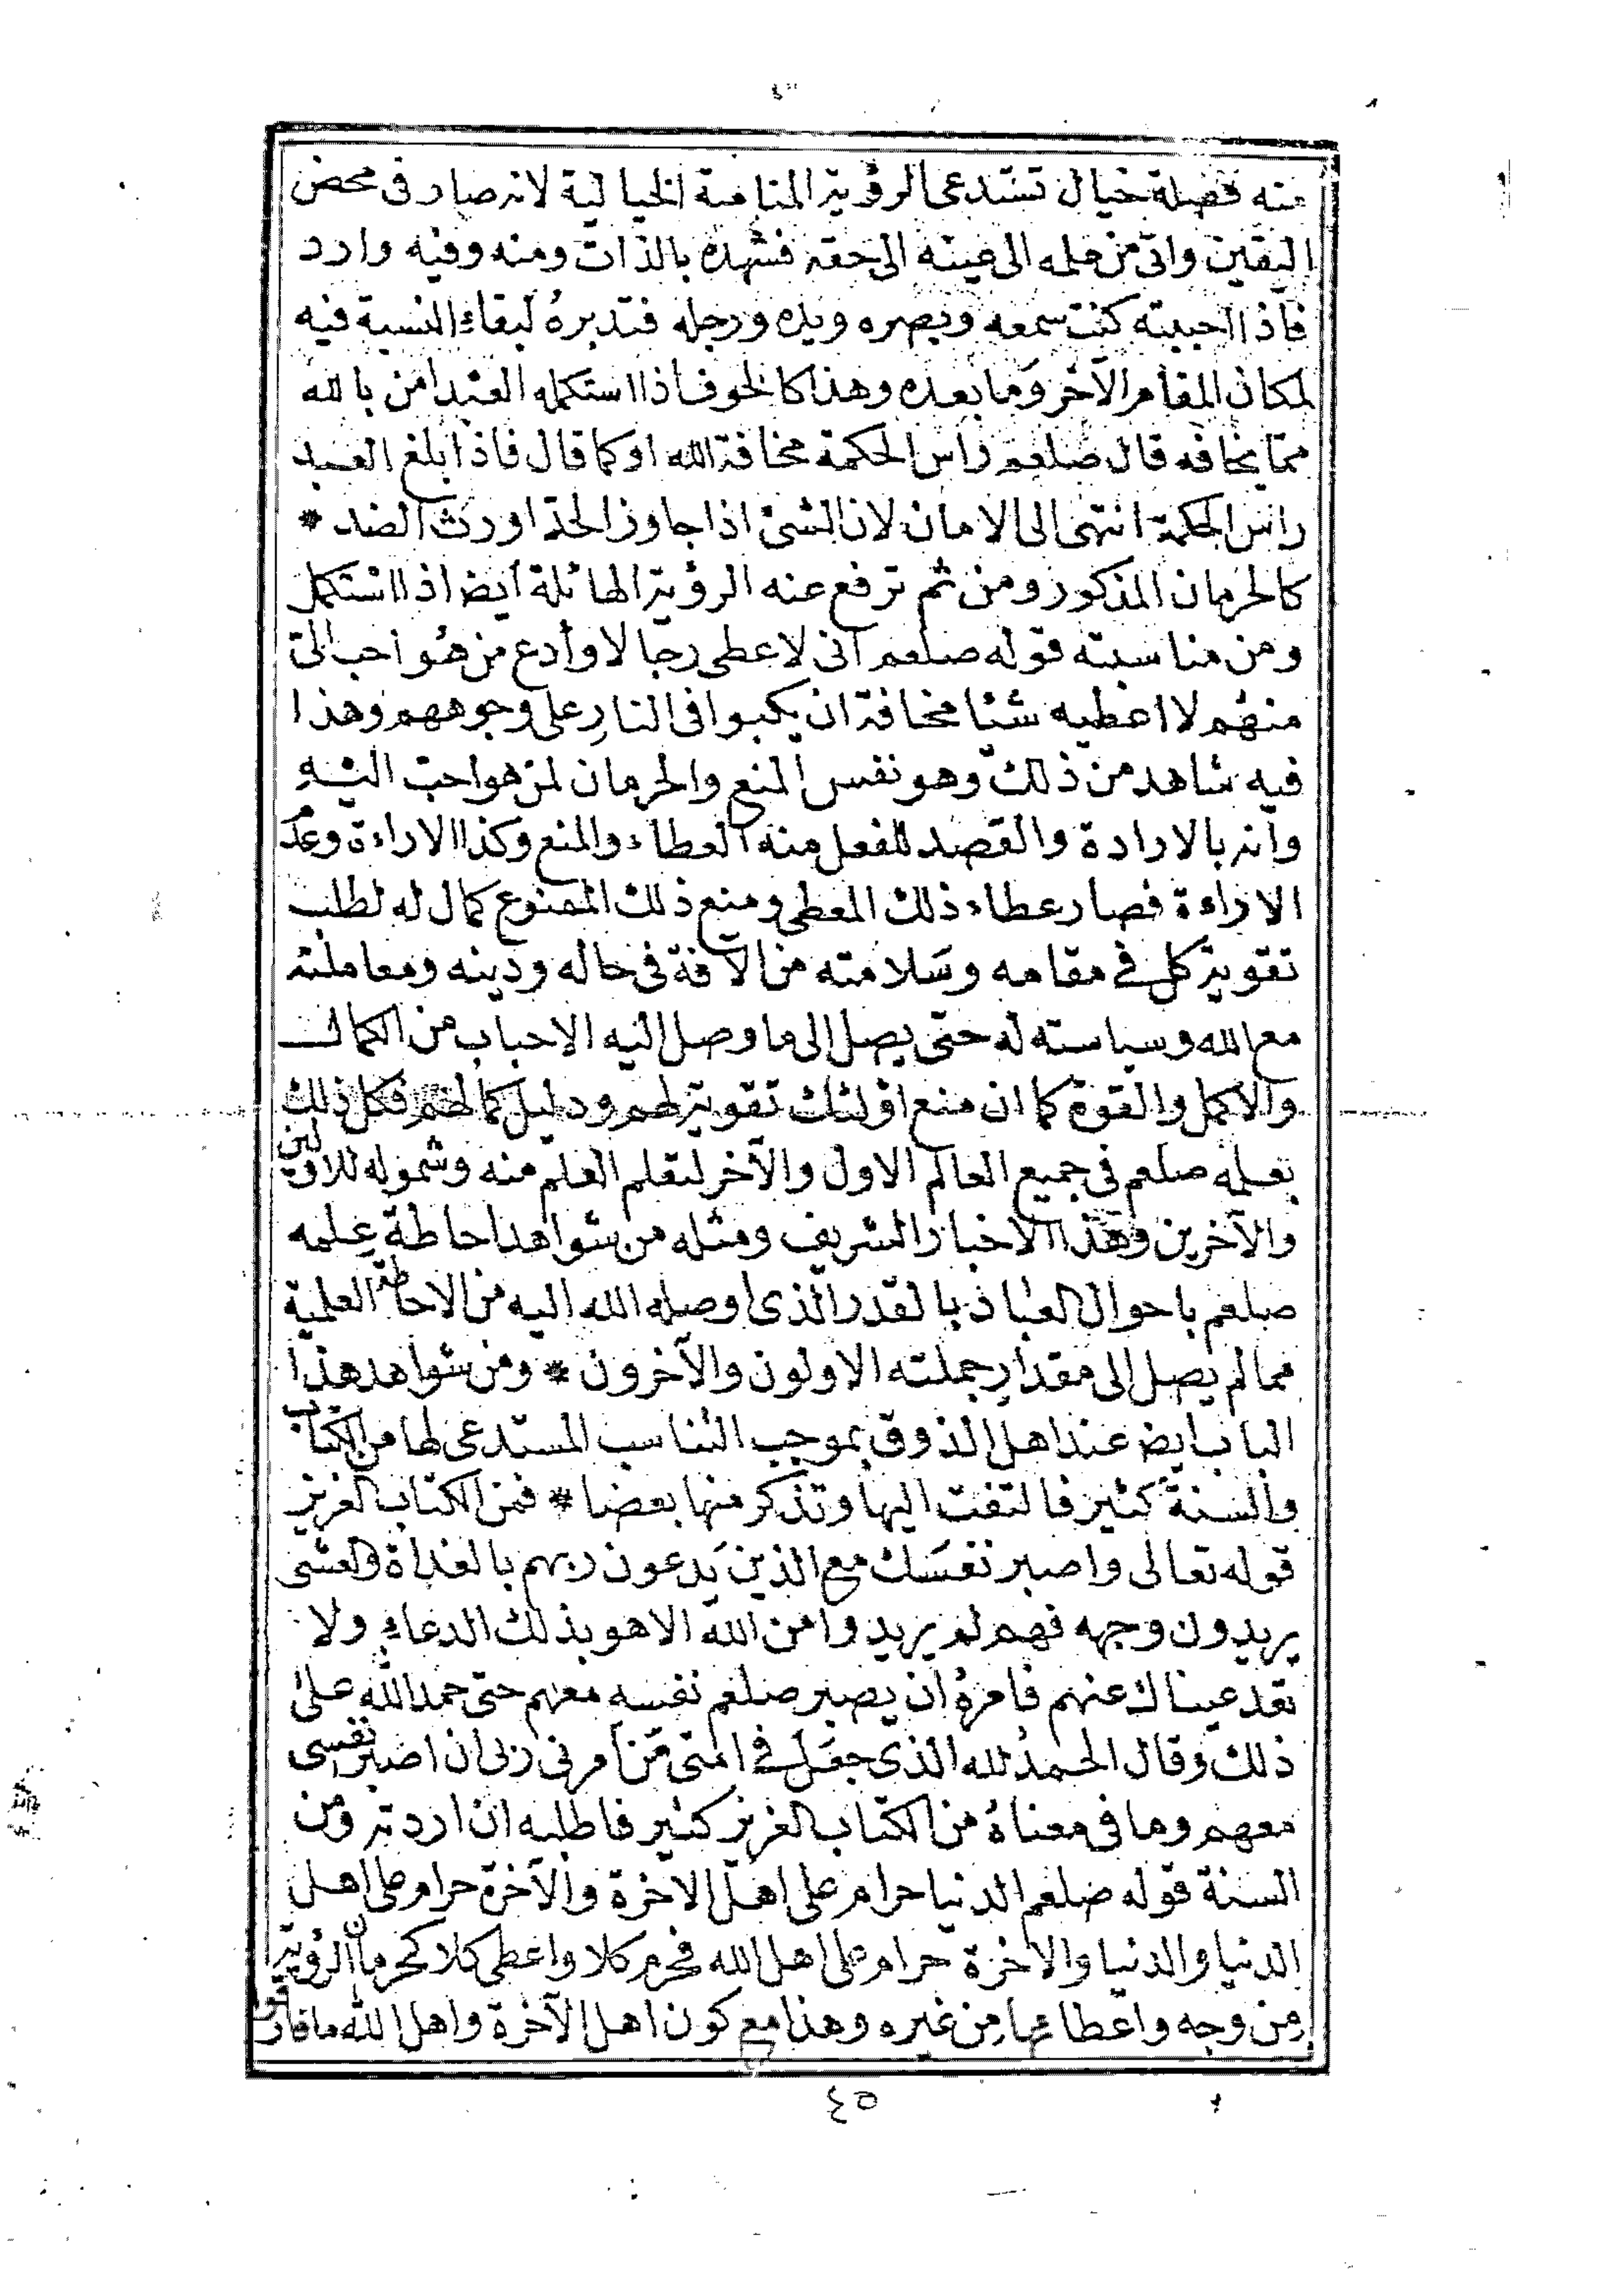 منه فضلة خيال تستدعى الرؤية المنامية الخيالية لانه صار فى محض
اليقين واتى من علمه الى عينه الى حقه فشهده بالذات ومنه وفيه وارد
فاذا احببته كنت سمعه وبصره ويده ورجله فتدبره لبقاء النسبة فيه
لمكان المقام الآخر وما بعده وهذا كالخوف اذا استكمله العبد امن بالله
مما يخافه قال صلعم راس الحكمة مخافة الله او كما قال فاذا بلغ العبد
راس الحكمة انتهى الى الامان لان الشئ اذا جاوز الحد اورث الضد *
كالحرمان المذكور ومن ثم ترفع عنه الرؤية الهائلة ايضا اذا استكمل
ومن مناسبته قوله صلعم انى لاعطى رجالا وأدع من هو احب الىّ
منهم لا اعطيه شئا مخافة ان يكبوا فى النار على وجوههم وهذا
فيه شاهد من ذلك وهو نفس المنع والحرمان لمن هو احب اليه
وانه بالارادة والقصد للفعل منه العطاء والمنع وكذا الاراءة وعدم
الاراءة فصار عطاء ذلك المعطى ومنع ذلك الممنوع كمال له لطلب
تقوية كل فى مقامه وسلامته من الآفة فى حاله ودينه ومعاملته
مع الله وسياسته له حتى يصل الى ما وصل اليه الاحباب من الكمال
والاكمل والقوة كما ان منع اولئك تقوية لهم ودليل كمالهم فكل ذلك
بعلمه صلعم فى جميع العالم الاول والآخر لتعلم العلم منه وشموله للاولين
والآخرين وهذا الاخبار الشريف ومثله من شواهد احاطة علمه
صلعم باحوال العباد بالقدر الذى اوصله الله اليه من الاحاطة العلمية
مما لم يصل الى مقدار جملته الاولون والآخرون * ومن شواهد هذا
الباب ايض عند اهل الذوق بموجب التناسب المستدعى لها من الكتاب
والسنة كثير فالتفت اليها وتذكر منها بعضا * فمن الكتاب العزيز
قوله تعالى واصبر نفسك مع الذين يدعون ربهم بالغداة والعشى
يريدون وجهه فهم لم يريدوا من الله الا هو بذلك الدعاء ولا
تعد عيناك عنهم فامره ان يصبر صلعم نفسه معهم حتى حمد الله على
ذلك وقال الحمد لله الذى جعل فى امتى من أمرنى ربى ان اصبر نفسى
معهم وما فى معناه من الكتاب العزيز كثير فاطلبه ان اردته ومن
السنة قوله صلعم الدنيا حرام على اهل الآخرة والآخرة حرام على اهل
الدنيا والدنيا والآخرة حرام على اهل الله فحرم كلا واعطى كلا كحرمان الرؤية
من وجه واعطائها من غيره وهذا مع كون اهل الآخرة واهل الله ما فارقوا
٤٥